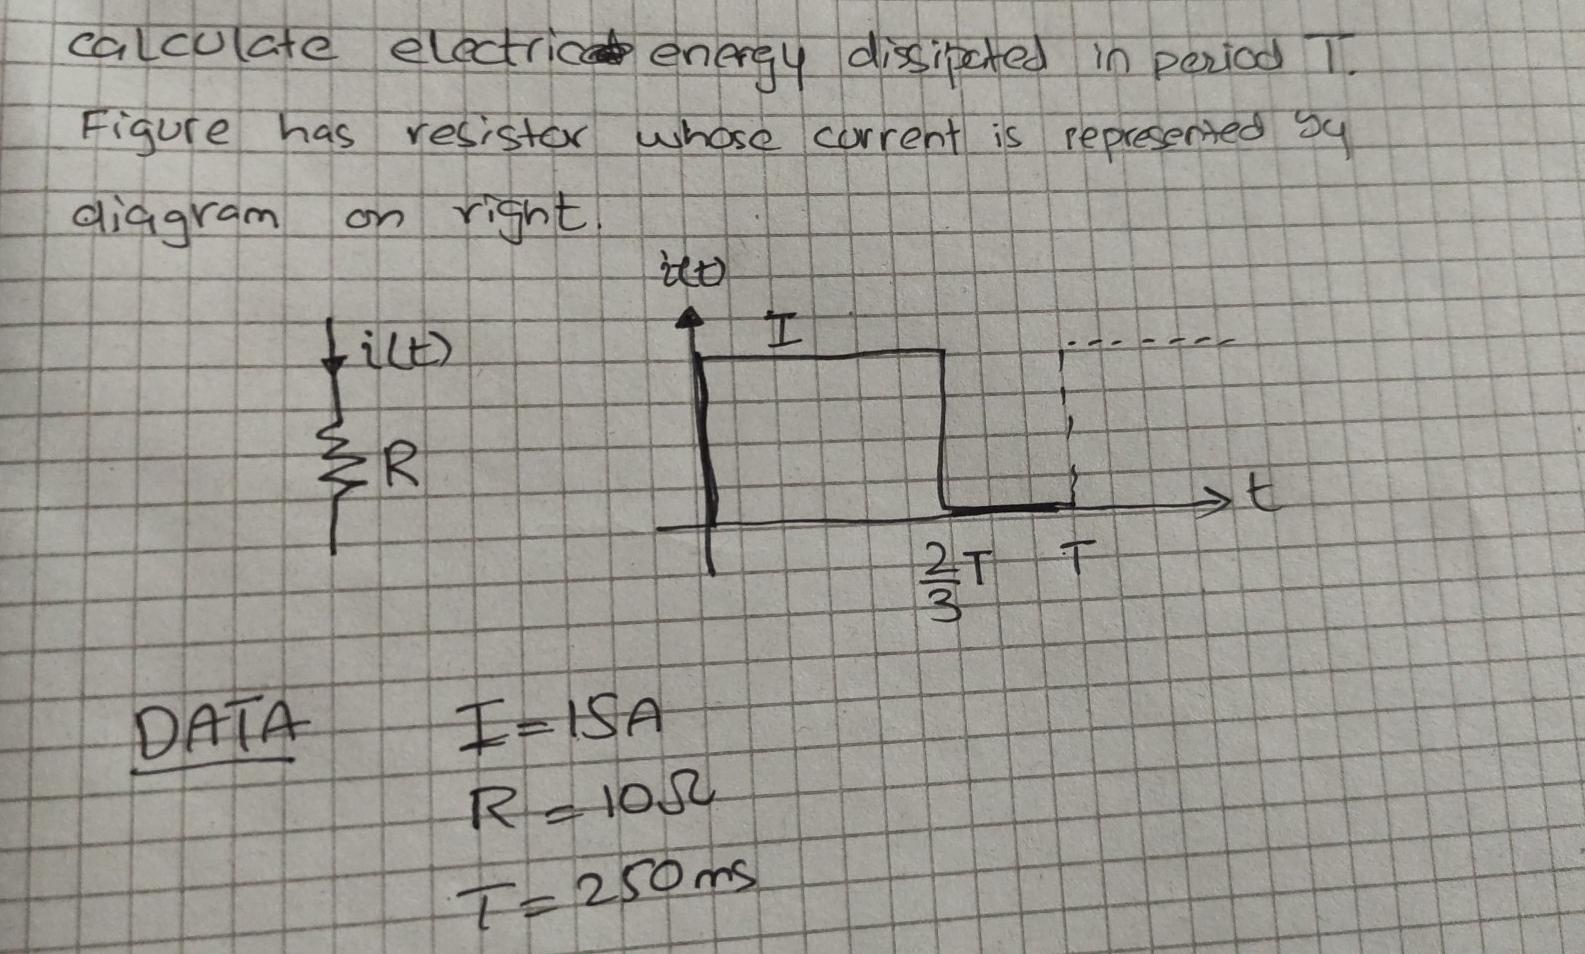 calculate electric energy dissipated in period T.
Figure has resistor whose current is represented by
diagram on right.
i(t)
I
i(t)
R
t
2/3 T T
DATA I=15A
R=10Ω
T=250ms